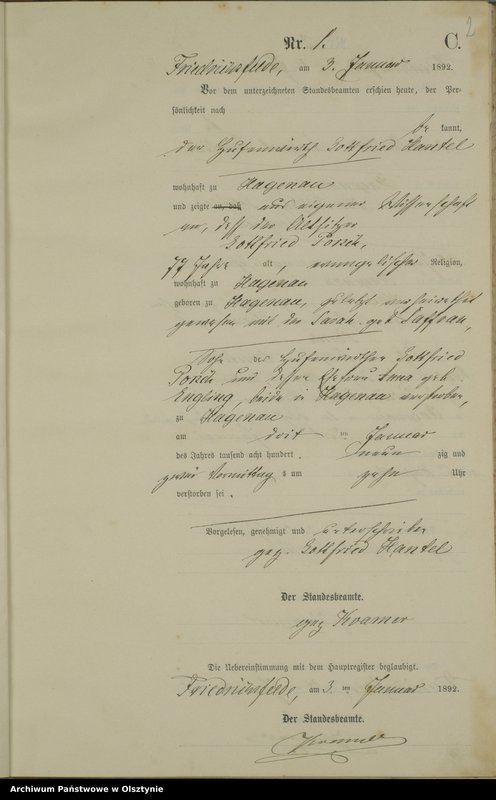 2
Nr. 1. C.
Friedrichsfelde, am 3. Januar 1892.
Vor dem unterzeichneten Standesbeamten erschien heute, der Per-
sönlichkeit nach
be kannt,
der Hufenwirth Gottfried Hantel
wohnhaft zu Hagenau
und zeigte an, daß aus eigener Wissenschaft
an, daß der Altsitzer
Gottfried Porsch,
77 Jahre alt, evangelischer Religion,
wohnhaft zu Hagenau
geboren zu Hagenau, zuletzt verheirathet
gewesen mit der Sarah geb. Saffran,
Sohn des Hufenwirthen Gottfried
Porsch und dessen Ehefrau Anna geb.
Engling, beide in Hagenau verstorben,
zu Hagenau
am dritten Januar
des Jahres tausend acht hundert neun zig und
zwei Vormittags um zehn Uhr
verstorben sei.
Vorgelesen, genehmigt und unterschrieben
gez. Gottfried Hantel
Der Standesbeamte.
gez Kramer
Die Uebereinstimmung mit dem Hauptregister beglaubigt.
Friedrichsfelde, am 3. ten Januar 1892.
Der Standesbeamte.
Kramer
Archiwum Państwowe w Olsztynie